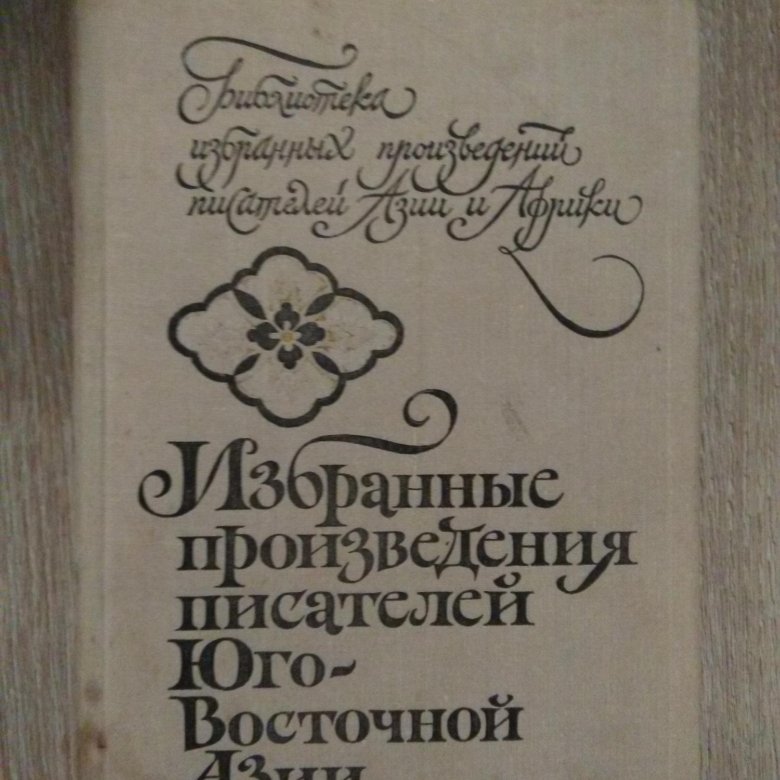 Библиотека
избранных произведений
писателей Азии и Африки
Избранные
произведения
писателей
Юго-
Восточной
Азии